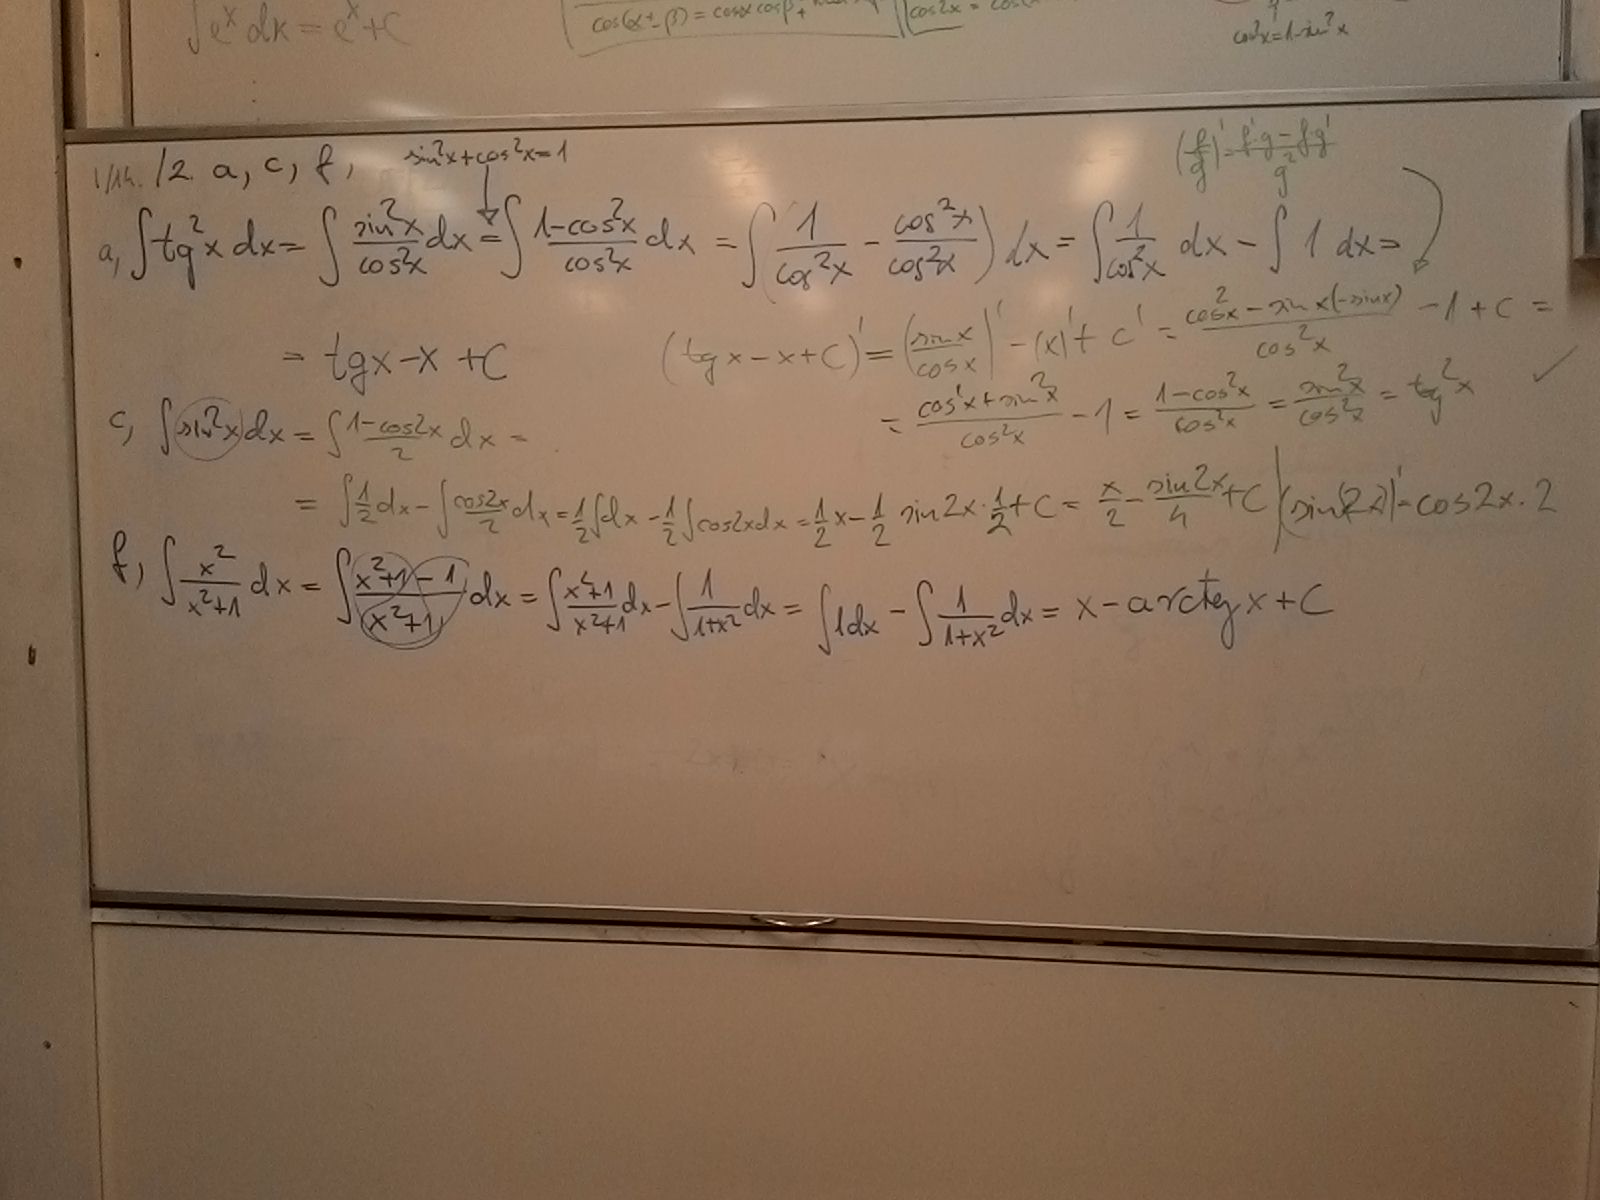 ∫eˣ dx = eˣ + C
cos(α±β) = cosα cosβ ∓
cos2x = cos
cos²x = 1-sin²x
1/14. /2. a, c, f,
sin²x+cos²x=1
(f/g)' = (f'·g - f·g')/g²
a, ∫tg²x dx = ∫ sin²x/cos²x dx = ∫ (1-cos²x)/cos²x dx = ∫(1/cos²x - cos²x/cos²x) dx = ∫ 1/cos²x dx - ∫ 1 dx =
= tgx - x + C
(tgx - x + C)' = (sinx/cosx)' - (x)' + C' = (cos²x - sinx(-sinx))/cos²x - 1 + C =
= (cos²x + sin²x)/cos²x - 1 = (1-cos²x)/cos²x = sin²x/cos²x = tg²x ✓
c, ∫sin²x dx = ∫ (1-cos2x)/2 dx =
= ∫ 1/2 dx - ∫ cos2x/2 dx = 1/2 ∫dx - 1/2 ∫cos2x dx = 1/2 x - 1/2 sin2x · 1/2 + C = x/2 - sin2x/4 + C | (sin(2x))' = cos2x · 2
f, ∫ x²/(x²+1) dx = ∫ (x²+1-1)/(x²+1) dx = ∫ (x²+1)/(x²+1) dx - ∫ 1/(1+x²) dx = ∫1dx - ∫ 1/(1+x²) dx = x - arctgx + C